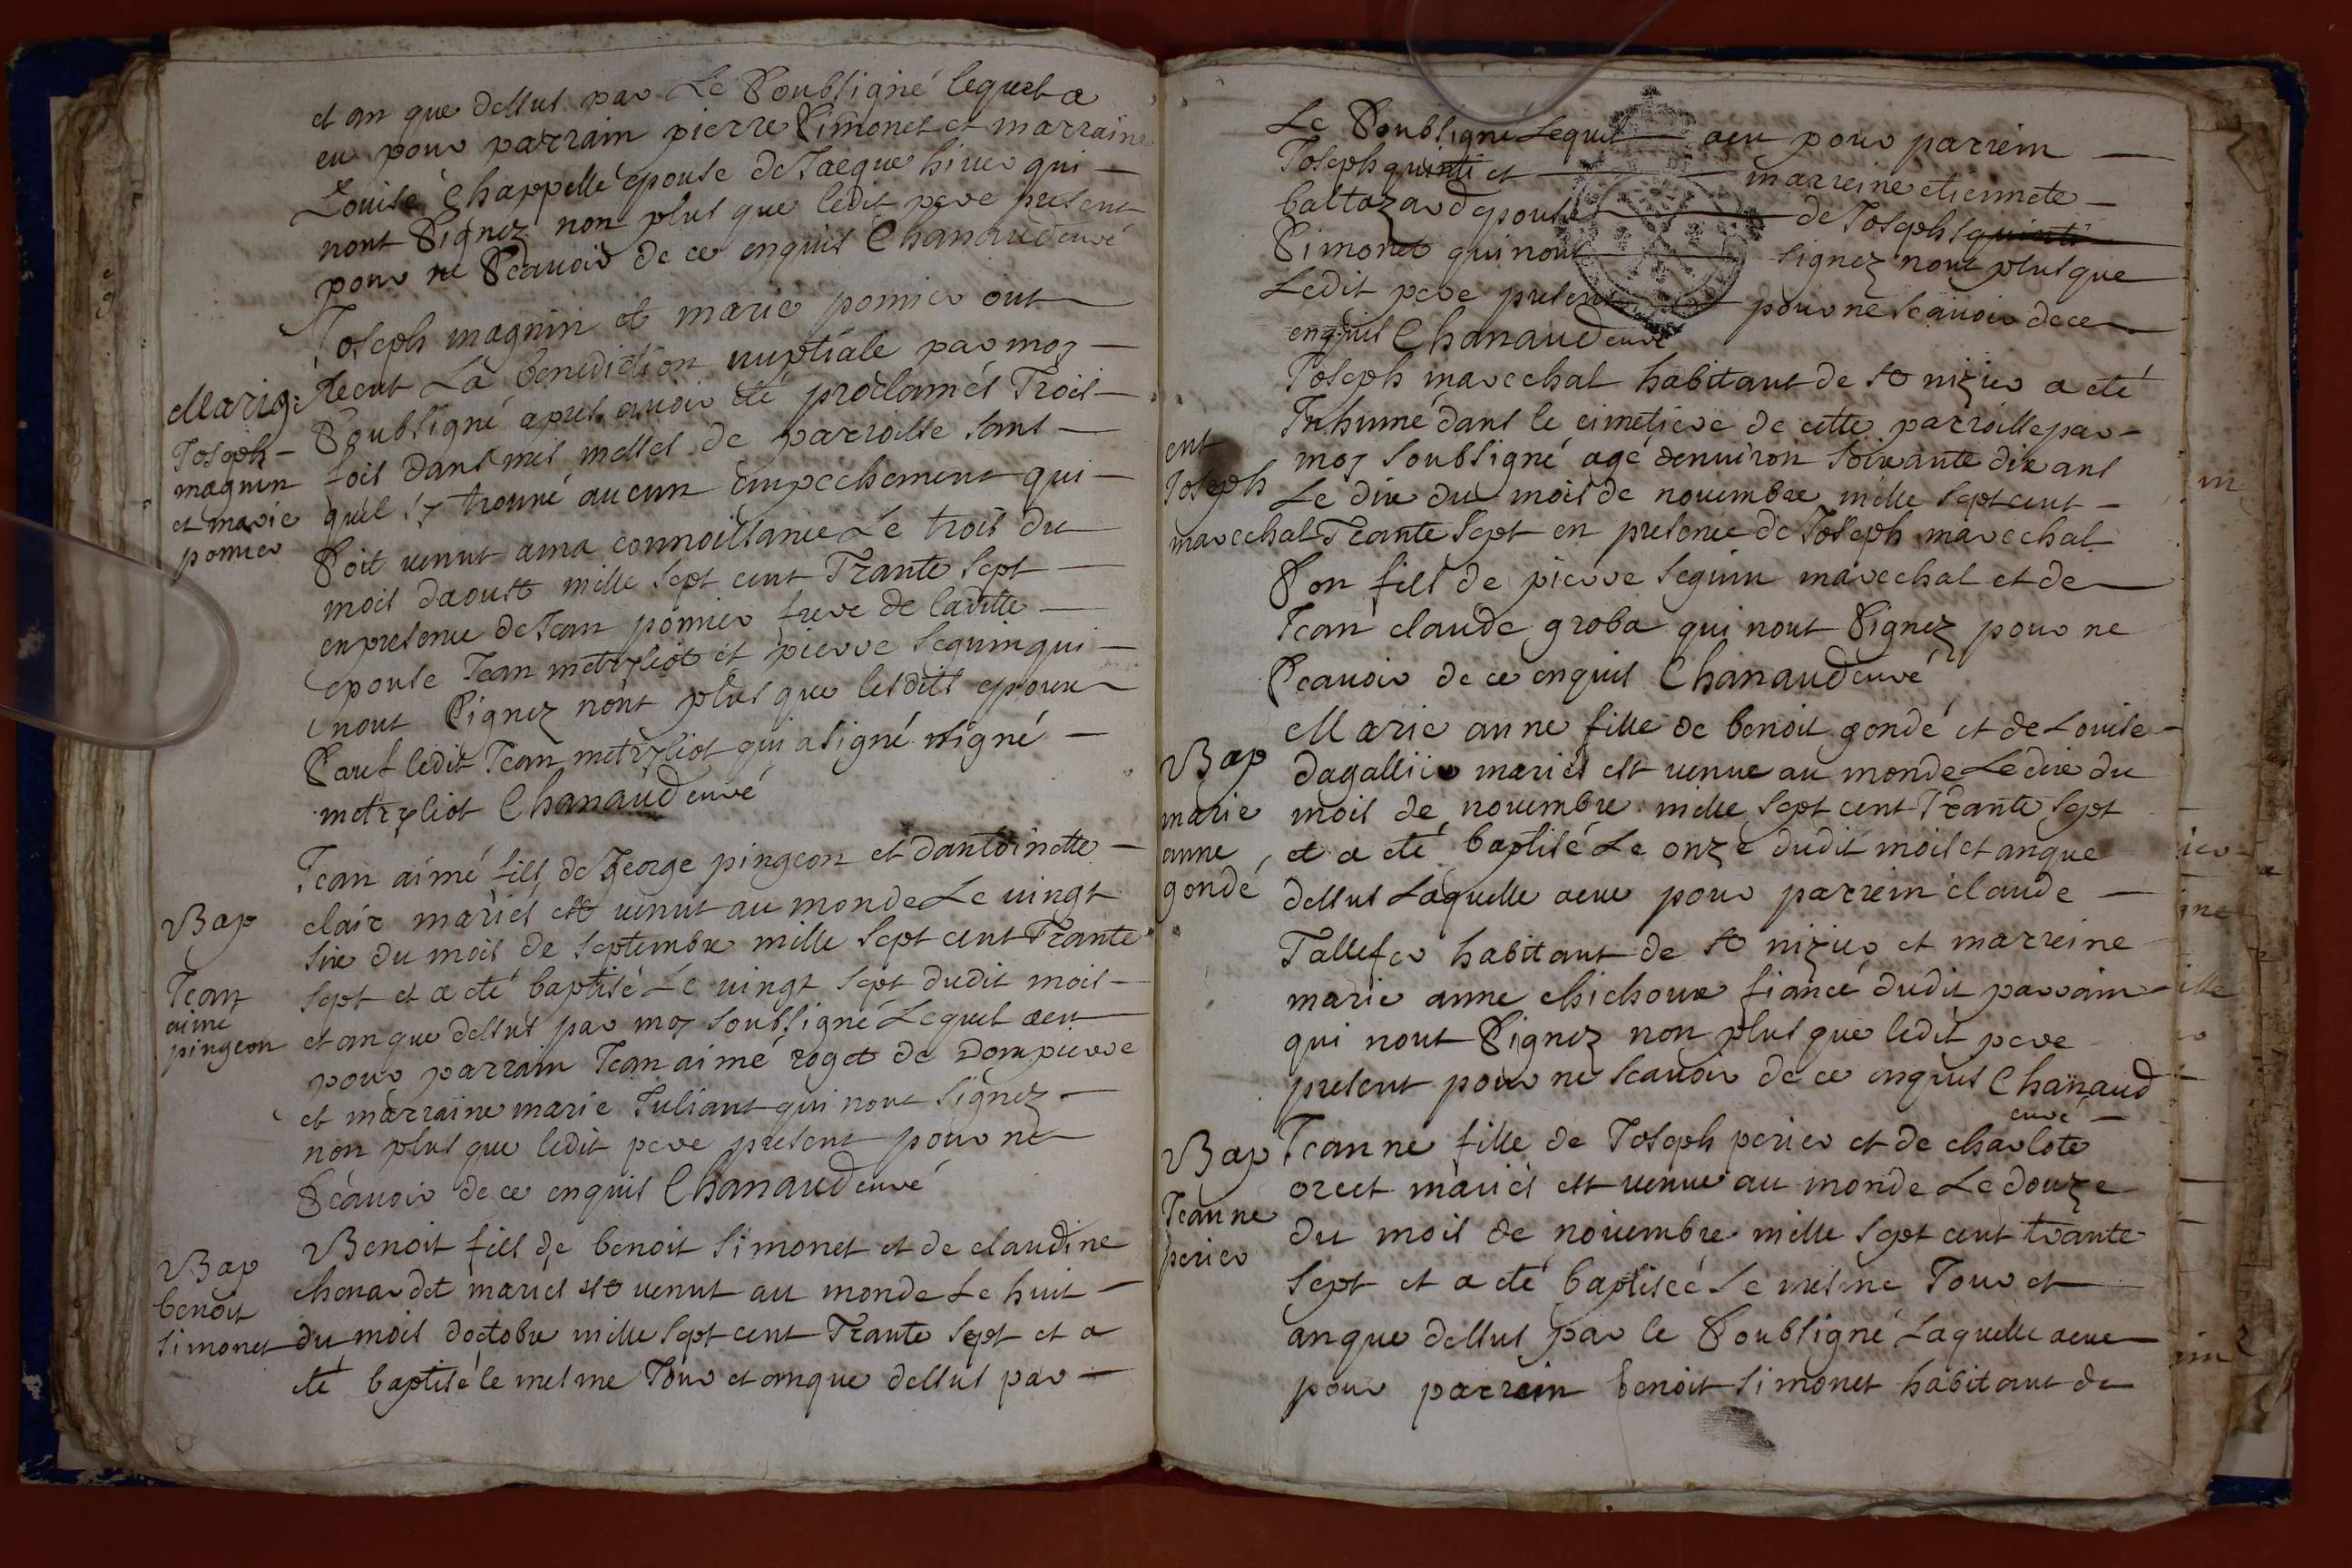 et an que dessus par Le Soubsigné lequel a
eu pour parrain pierre Simonet et marraine
Louise Chappellé epouse de Jacque hiver qui
nont Signez non plus que ledit pere present
pour ne Scauoir de ce enquis Chanaud curé
Mariag:
Joseph
magnin
et marie
pomier
Joseph magnin et marie pomier ont
Recut La benediction nuptiale par moy
Soubsigné apres auoir été proclamés Trois
fois dans mes messes de parroisse sans
quil sy trouué aucun Empechement qui
Soit venut a ma connoissance Le trois du
mois daoust mille Sept cent Trante Sept
en presence de Jean pomier frere de laditte
epouse Jean metryliot et pierre Seguin qui
nont Signez nont plus que lesdits epoux
Sauf ledit Jean metryliot qui a signé signé
metryliot Chanaud curé
Bap
Jean
aimé
pingeon
Jean aimé fils de George pingeon et dantoinette
clair mariés est venut au monde Le vingt
Six du mois de Septembre mille Sept cent Trante
Sept et a eté baptisé Le vingt Sept dudit mois
et an que dessus par moy soubsigné Lequel a eu
pour parrain Jean aimé roget de Dompierre
et marraine marie Juliant qui nont Signez
non plus que ledit pere present pour ne
Scauoir de ce enquis Chanaud curé
Bap
benoit
Simonet
Benoit fils de benoit Simonet et de claudine
chenardet mariés est venut au monde Le huit
du mois doctobre mille Sept cent Trante Sept et a
été baptisé le mesme Jour et an que dessus par
Le Soubsigné Lequel a eu pour parrein
Joseph quinti et marreine etiennete
baltazard epouse de Joseph quinti
Simonet qui nont signez nont plus que
Ledit pere present pour ne Scauoir de ce
enquis Chanaud curé
ent
Joseph
marechal
Joseph marechal habitant de St nizier a été
Inhumé dans le cimetiere de cette parroisse par
moy Soubsigné agé denuiron Soixante dix ans
Le dix du mois de nouembre mille Sept cent
Trante Sept en presence de Joseph marechal
Son fils de pierre Seguin marechal et de
Jean claude groba qui nont Signez pour ne
Scauoir de ce enquis Chanaud curé
Bap
marie
anne
gondé
Marie anne fille de benoit gondé et de Louise
dagallier mariés est venue au monde Le dix du
mois de nouembre mille Sept cent Trante Sept
et a eté baptisé Le onze dudit mois et an que
dessus Laquelle a eue pour parrein claude
Tallefer habitant de St nizier et marreine
marie anne chichoux fiancé dudit parrain
qui nont Signez non plus que ledit pere
present pour ne scauoir de ce enquis Chanaud
curé
Bap
Jeanne
perier
Jeanne fille de Joseph perier et de charlote
orcet mariés est venue au monde Le douze
du mois de nouembre mille Sept cent trante
Sept et a eté baptiseé Le mesme Jour et
an que dessus par le Soubsigné Laquelle a eue
pour parrein benoit Simonet habitant de